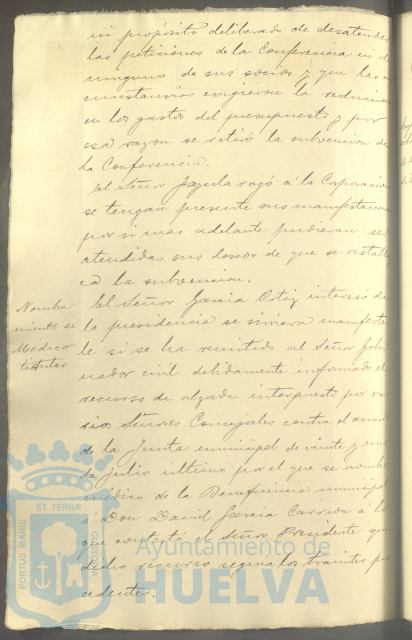 ni propósito deliberado de desatender
las peticiones de la Conferencia ni de
ninguno de sus socios y que las
cunstancias exigieron la reduccion
en los gastos del presupuesto y por
esa razon se retiró la subvencion de
la Conferencia.
El Señor Jagula rogó á la Corporacion
se tengan presente sus manifestacion
por si mas adelante pudieran ser
atendidas sus deseos de que se restable
ca la subvencion.
Nombra
miento de
Médico
titular
El Señor Garcia Ortiz interesó de
la presidencia se sirviera manifesta
le si se ha remitido al Señor Gober
nador civil debidamente informado el
recurso de alzada interpuesto por va
rios Señores Concejales contra el acuerdo
de la Junta municipal de veinte y uno
de Julio último por el que se nombró
médico de la Beneficencia municipal
á Don David Garcia Carrion á lo
que contestó el Señor Presidente que
dicho recurso seguia los trámites pro
cedentes.
PORTUS MARIS
ET TERRÆ
CUSTODIA
Ayuntamiento de
HUELVA